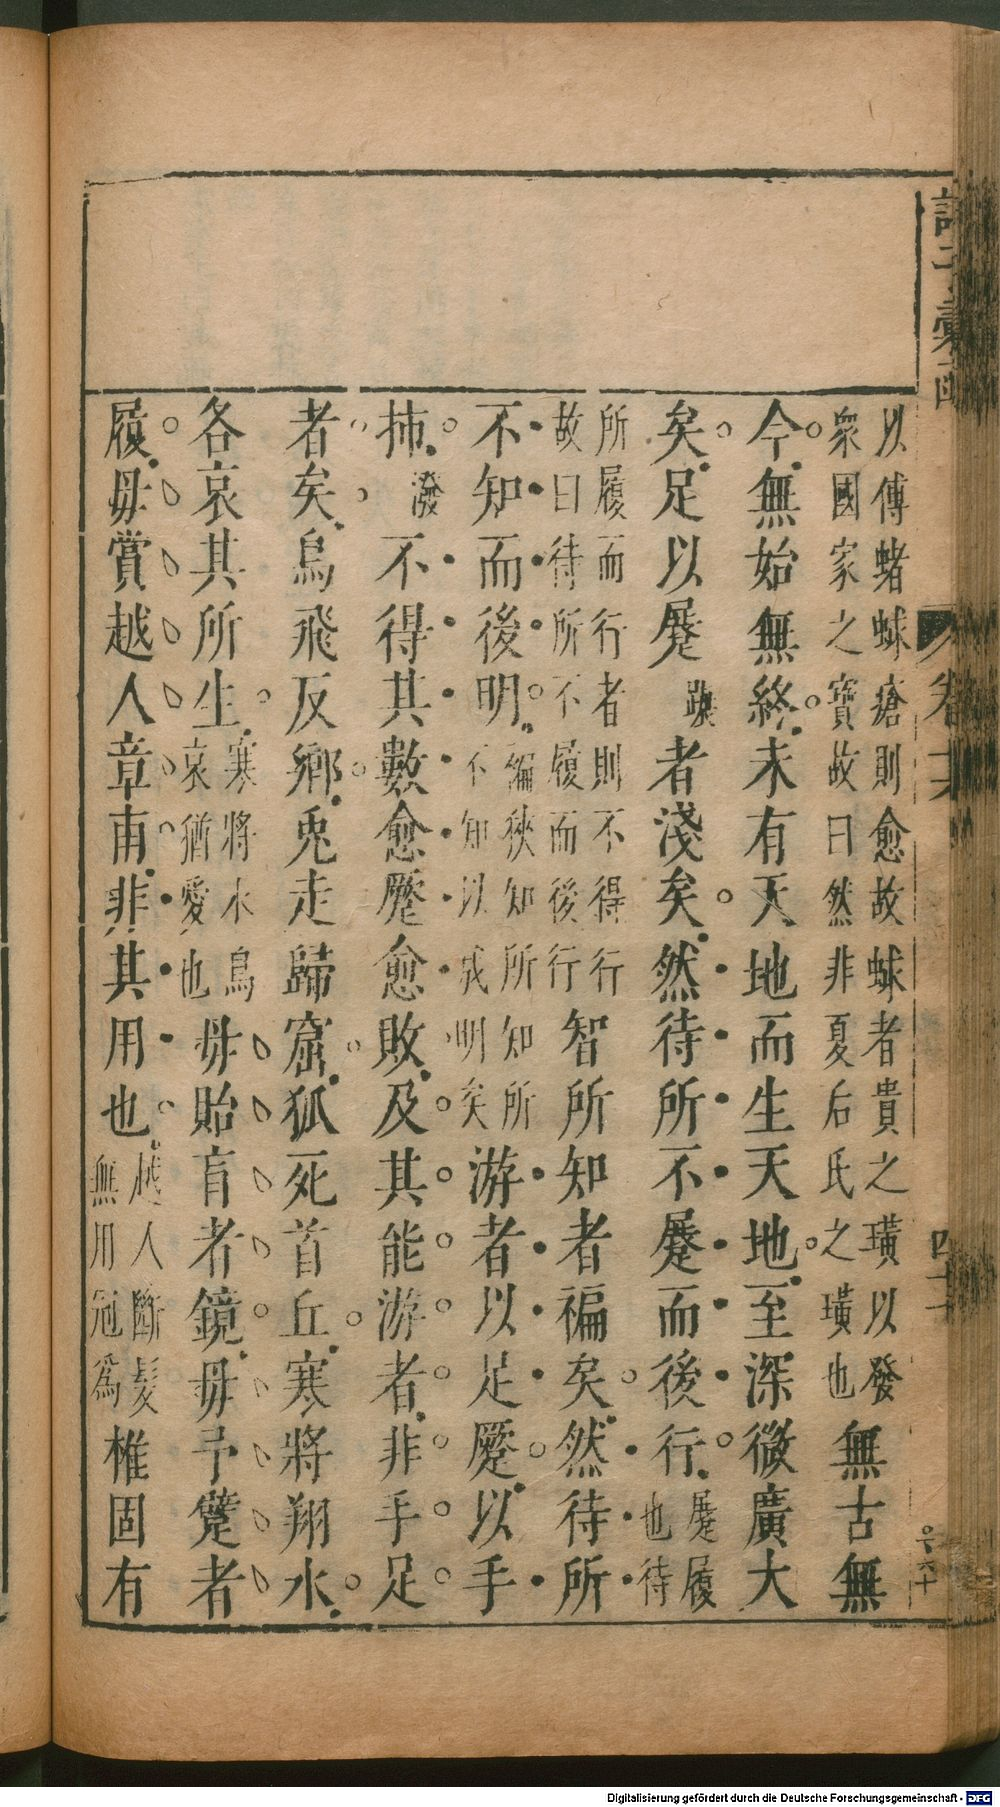 以傅蛷瘡則愈故蛷者貴之璜以發
衆國家之寶故曰然非夏后氏之璜也無古無
今無始無終未有天地而生天地至深微廣大
矣足以蹍蹍者淺矣然待所不蹍而後行蹍履也待
所履而行者則不得行
故曰待所不履而後行智所知者褊矣然待所
不知而後明褊狹知所知所不知以成明矣游者以足蹷以手
抪潑不得其數愈蹷愈敗及其能游者非手足
者矣鳥飛反鄉兎走歸窟狐死首丘寒將翔水
各哀其所生寒將水鳥哀猶愛也毋貽盲者鏡毋予躄者
履毋賞越人章甫非其用也越人斷髮無用冠爲椎固有
諸子彙函
卷十六
四十一
Digitalisierung gefördert durch die Deutsche Forschungsgemeinschaft - DFG